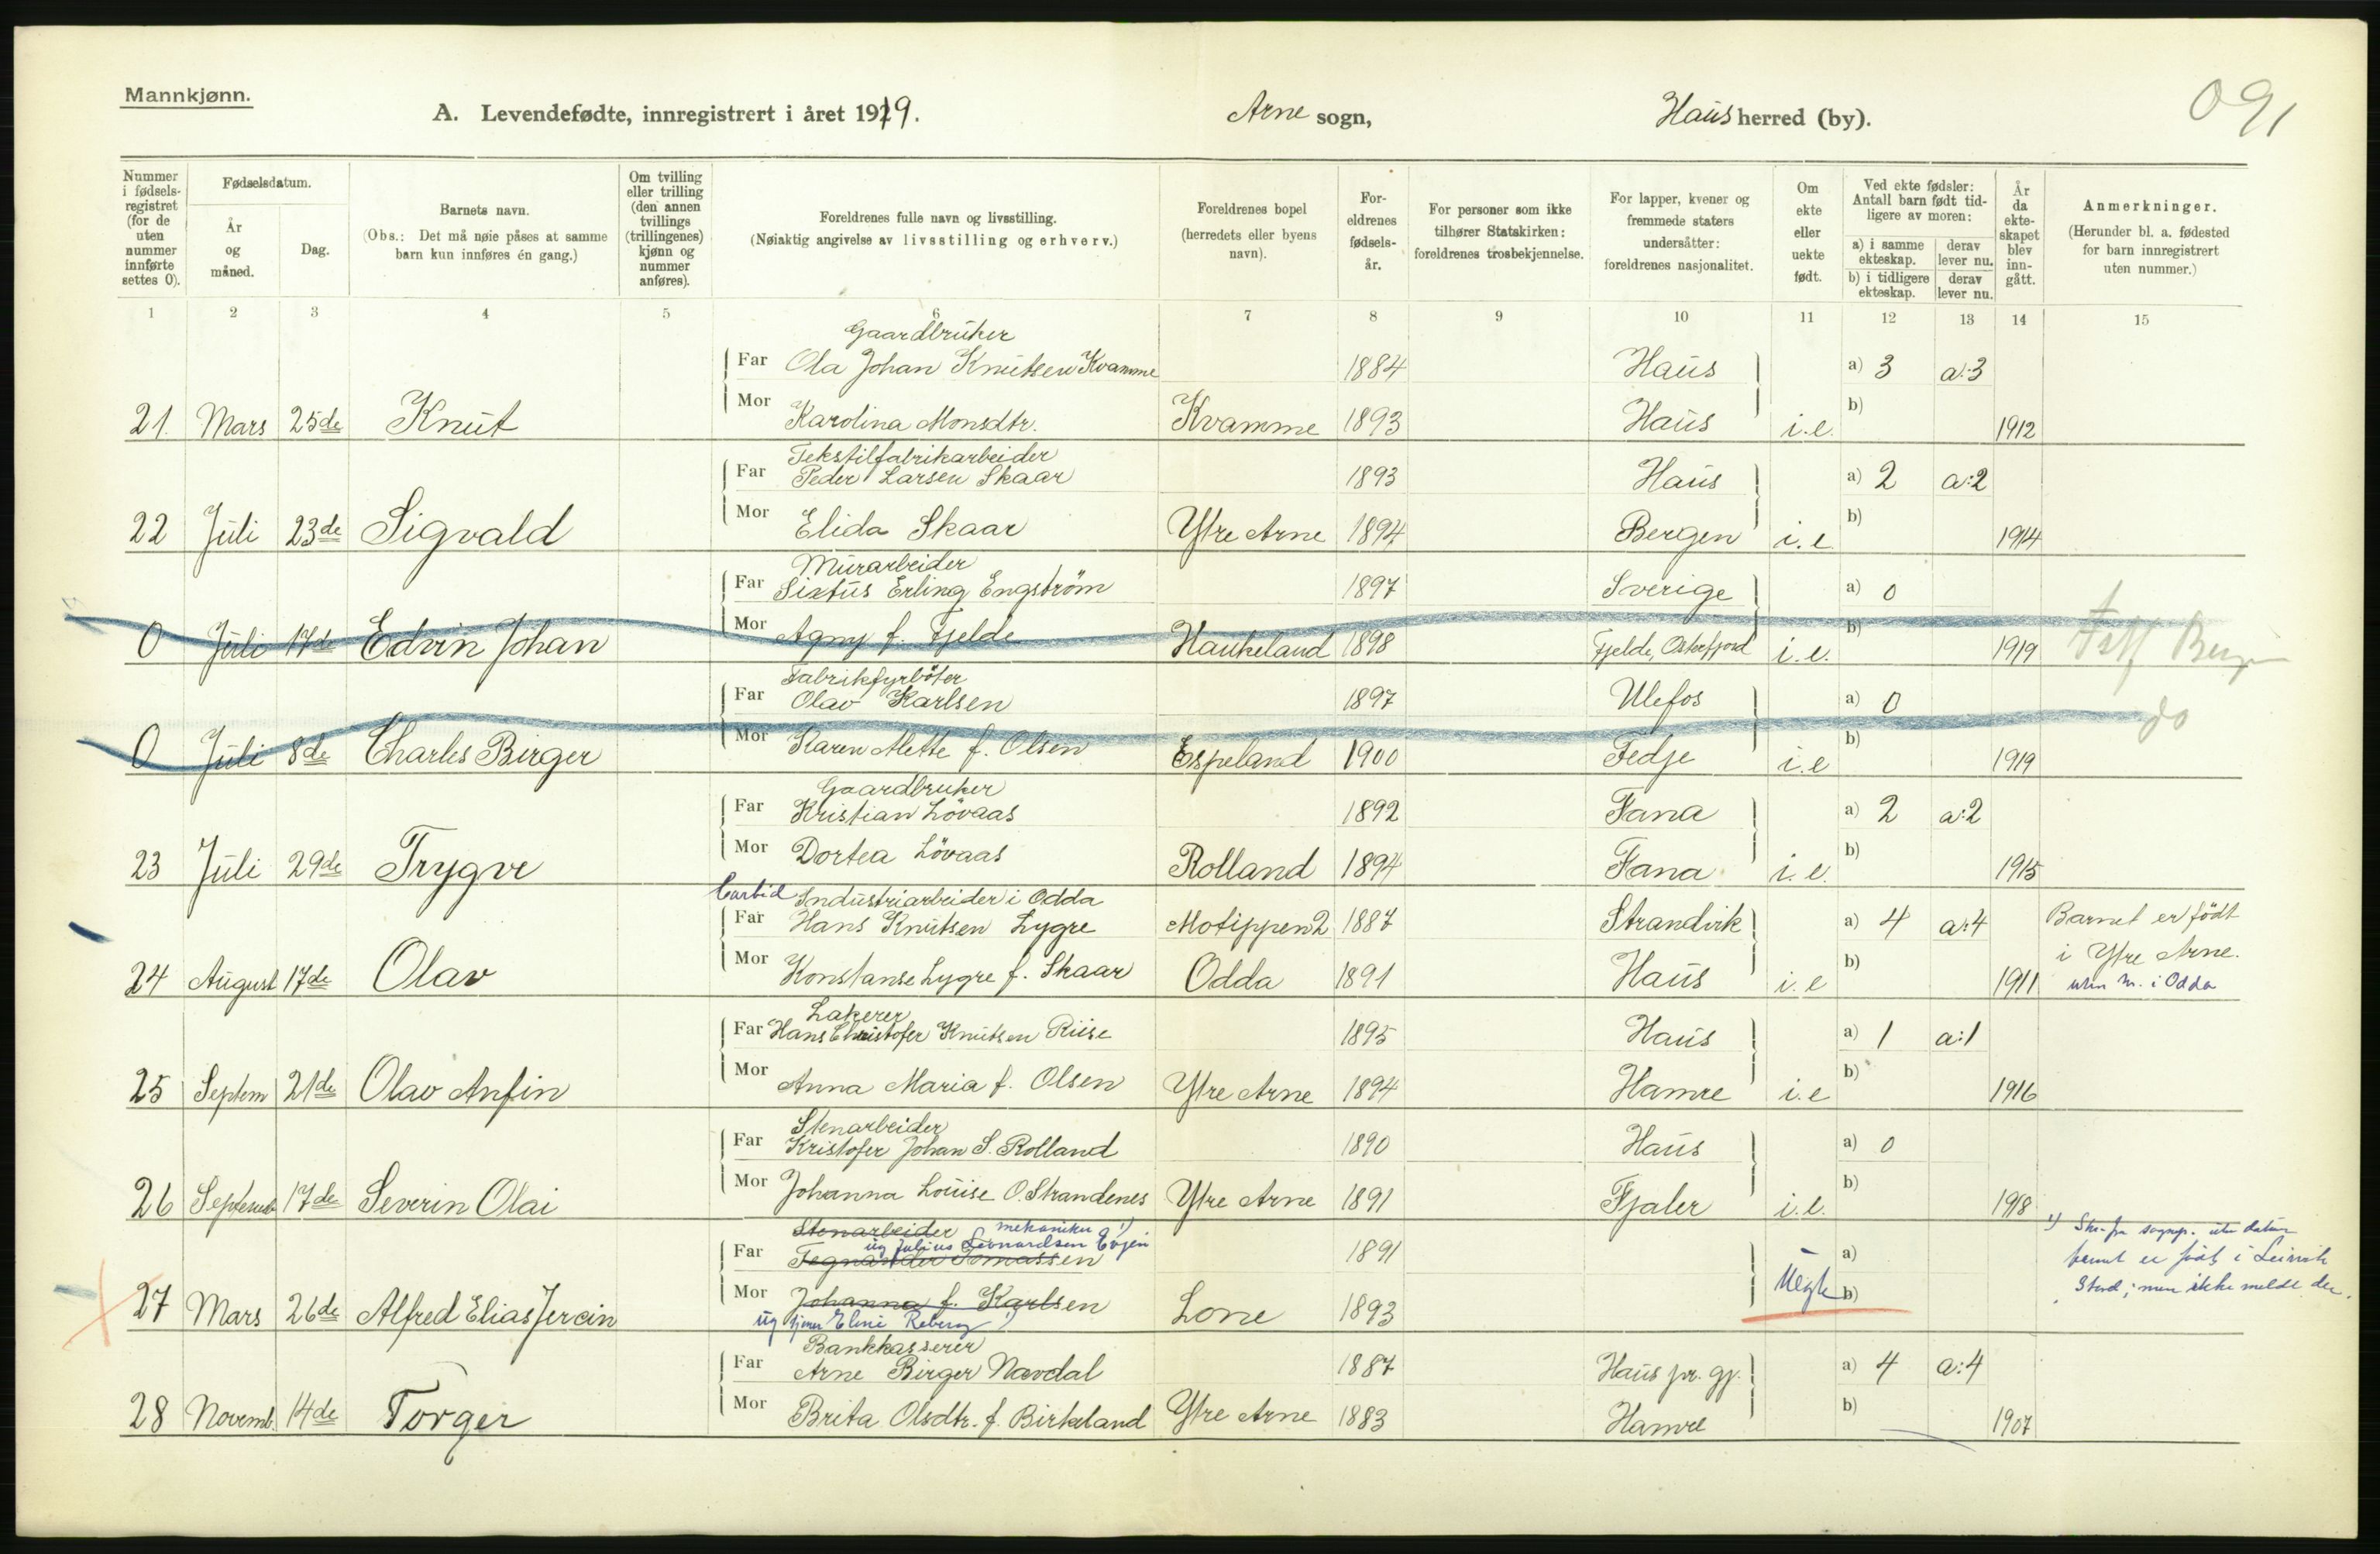 Mannkjønn.
A. Levendefødte, innregistrert i året 1919.
Arne sogn,
Haus herred (by).
091
Nummer i fødsels-registret (for de uten nummer innførte settes 0).
Fødselsdatum.
År og måned.
Dag.
Barnets navn.
(Obs.: Det må nøie påses at samme barn kun innføres én gang.)
Om tvilling eller trilling (den annen tvillings (trillingenes) kjønn og nummer anføres).
Foreldrenes fulle navn og livsstilling.
(Nøiaktig angivelse av livsstilling og erhverv.)
Foreldrenes bopel (herredets eller byens navn).
For-eldrenes fødsels-år.
For personer som ikke tilhører Statskirken: foreldrenes trosbekjennelse.
For lapper, kvener og fremmede staters undersåtter: foreldrenes nasjonalitet.
Om ekte eller uekte født.
Ved ekte fødsler: Antall barn født tid-ligere av moren:
a) i samme ekteskap.
derav lever nu.
b) i tidligere ekteskap.
derav lever nu.
År da ekte-skapet blev inn-gått.
Anmerkninger.
(Herunder bl. a. fødested for barn innregistrert uten nummer.)
1 2 3 4 5 6 7 8 9 10 11 12 13 14 15
Gaardbruker
Far Ola Johan Knutsen Kvamme 1884 Haus a) 3 a:3
21. Mars 25de Knut Mor Karolina Monsdtr. Kvamme 1893 Haus i.e. b) 1912
Tekstilfabrikarbeider
Far Peder Larsen Skaar 1893 Haus a) 2 a:2
22 Juli 23de Sigvald Mor Elida Skaar Ytre Arne 1894 Bergen i.e. b) 1914
Murarbeider
Far Sixtus Erling Engström 1897 Sverige a) 0
0 Juli 17de Edvin Johan Mor Agny f. Fjelde Haukeland 1898 Fjelde, Osterfjord i.e. b) 1919
Fabrikfyrböter
Far Olav Karlsen 1897 Ulefos a) 0
do
0 Juli 8de Charles Birger Mor Karen Mette f. Olsen Espeland 1900 Fedje i.e b) 1919
Gaardbruker
Far Kristian Lövaas 1892 Fana a) 2 a:2
23 Juli 29de Trygve Mor Dortea Lövaas Rolland 1894 Fana i.e. b) 1915
Carbid Industriarbeider i Odda
Far Hans Knutsen Lygre Motippen 2 1887 Strandvik a) 4 a:4 Barnet er födt
i Ytre Arne.
24 August 17de Olav Mor Konstanse Lygre f. Skaar Odda 1891 Haus i.e b) 1911 uten nr. i Odda
Lakerer
Far Hans Christofer Knutsen Riise 1895 Haus a) 1 a:1
25 Septem 21de Olav Anfin Mor Anna Maria f. Olsen Ytre Arne 1894 Hamre i.e b) 1916
Stenarbeider
Far Kristofer Johan S. Rolland 1890 Haus a) 0
26 Septemb 17de Severin Olai Mor Johanna Louise O. Strandenes Ytre Arne 1891 Fjaler i.e. b) 1918
Stenarbeider mekaniker 1)
ug Julius Leonardsen Evjen
Far Tomassen 1891 a)
27 Mars 26de Alfred Elias Mor Johanna f. Karlsen Lone 1893 Uegte b)
ug tjener Eline
1)
født i Leirvik
Stord; men ikke meldt der.
Bankkasserer
Far Arne Birger Navdal 1887 Haus pr. gj. a) 4 a:4
28 Novemb. 14de Torger Mor Brita Olsdtr. f. Birkeland Ytre Arne 1883 Hamre b) 1907